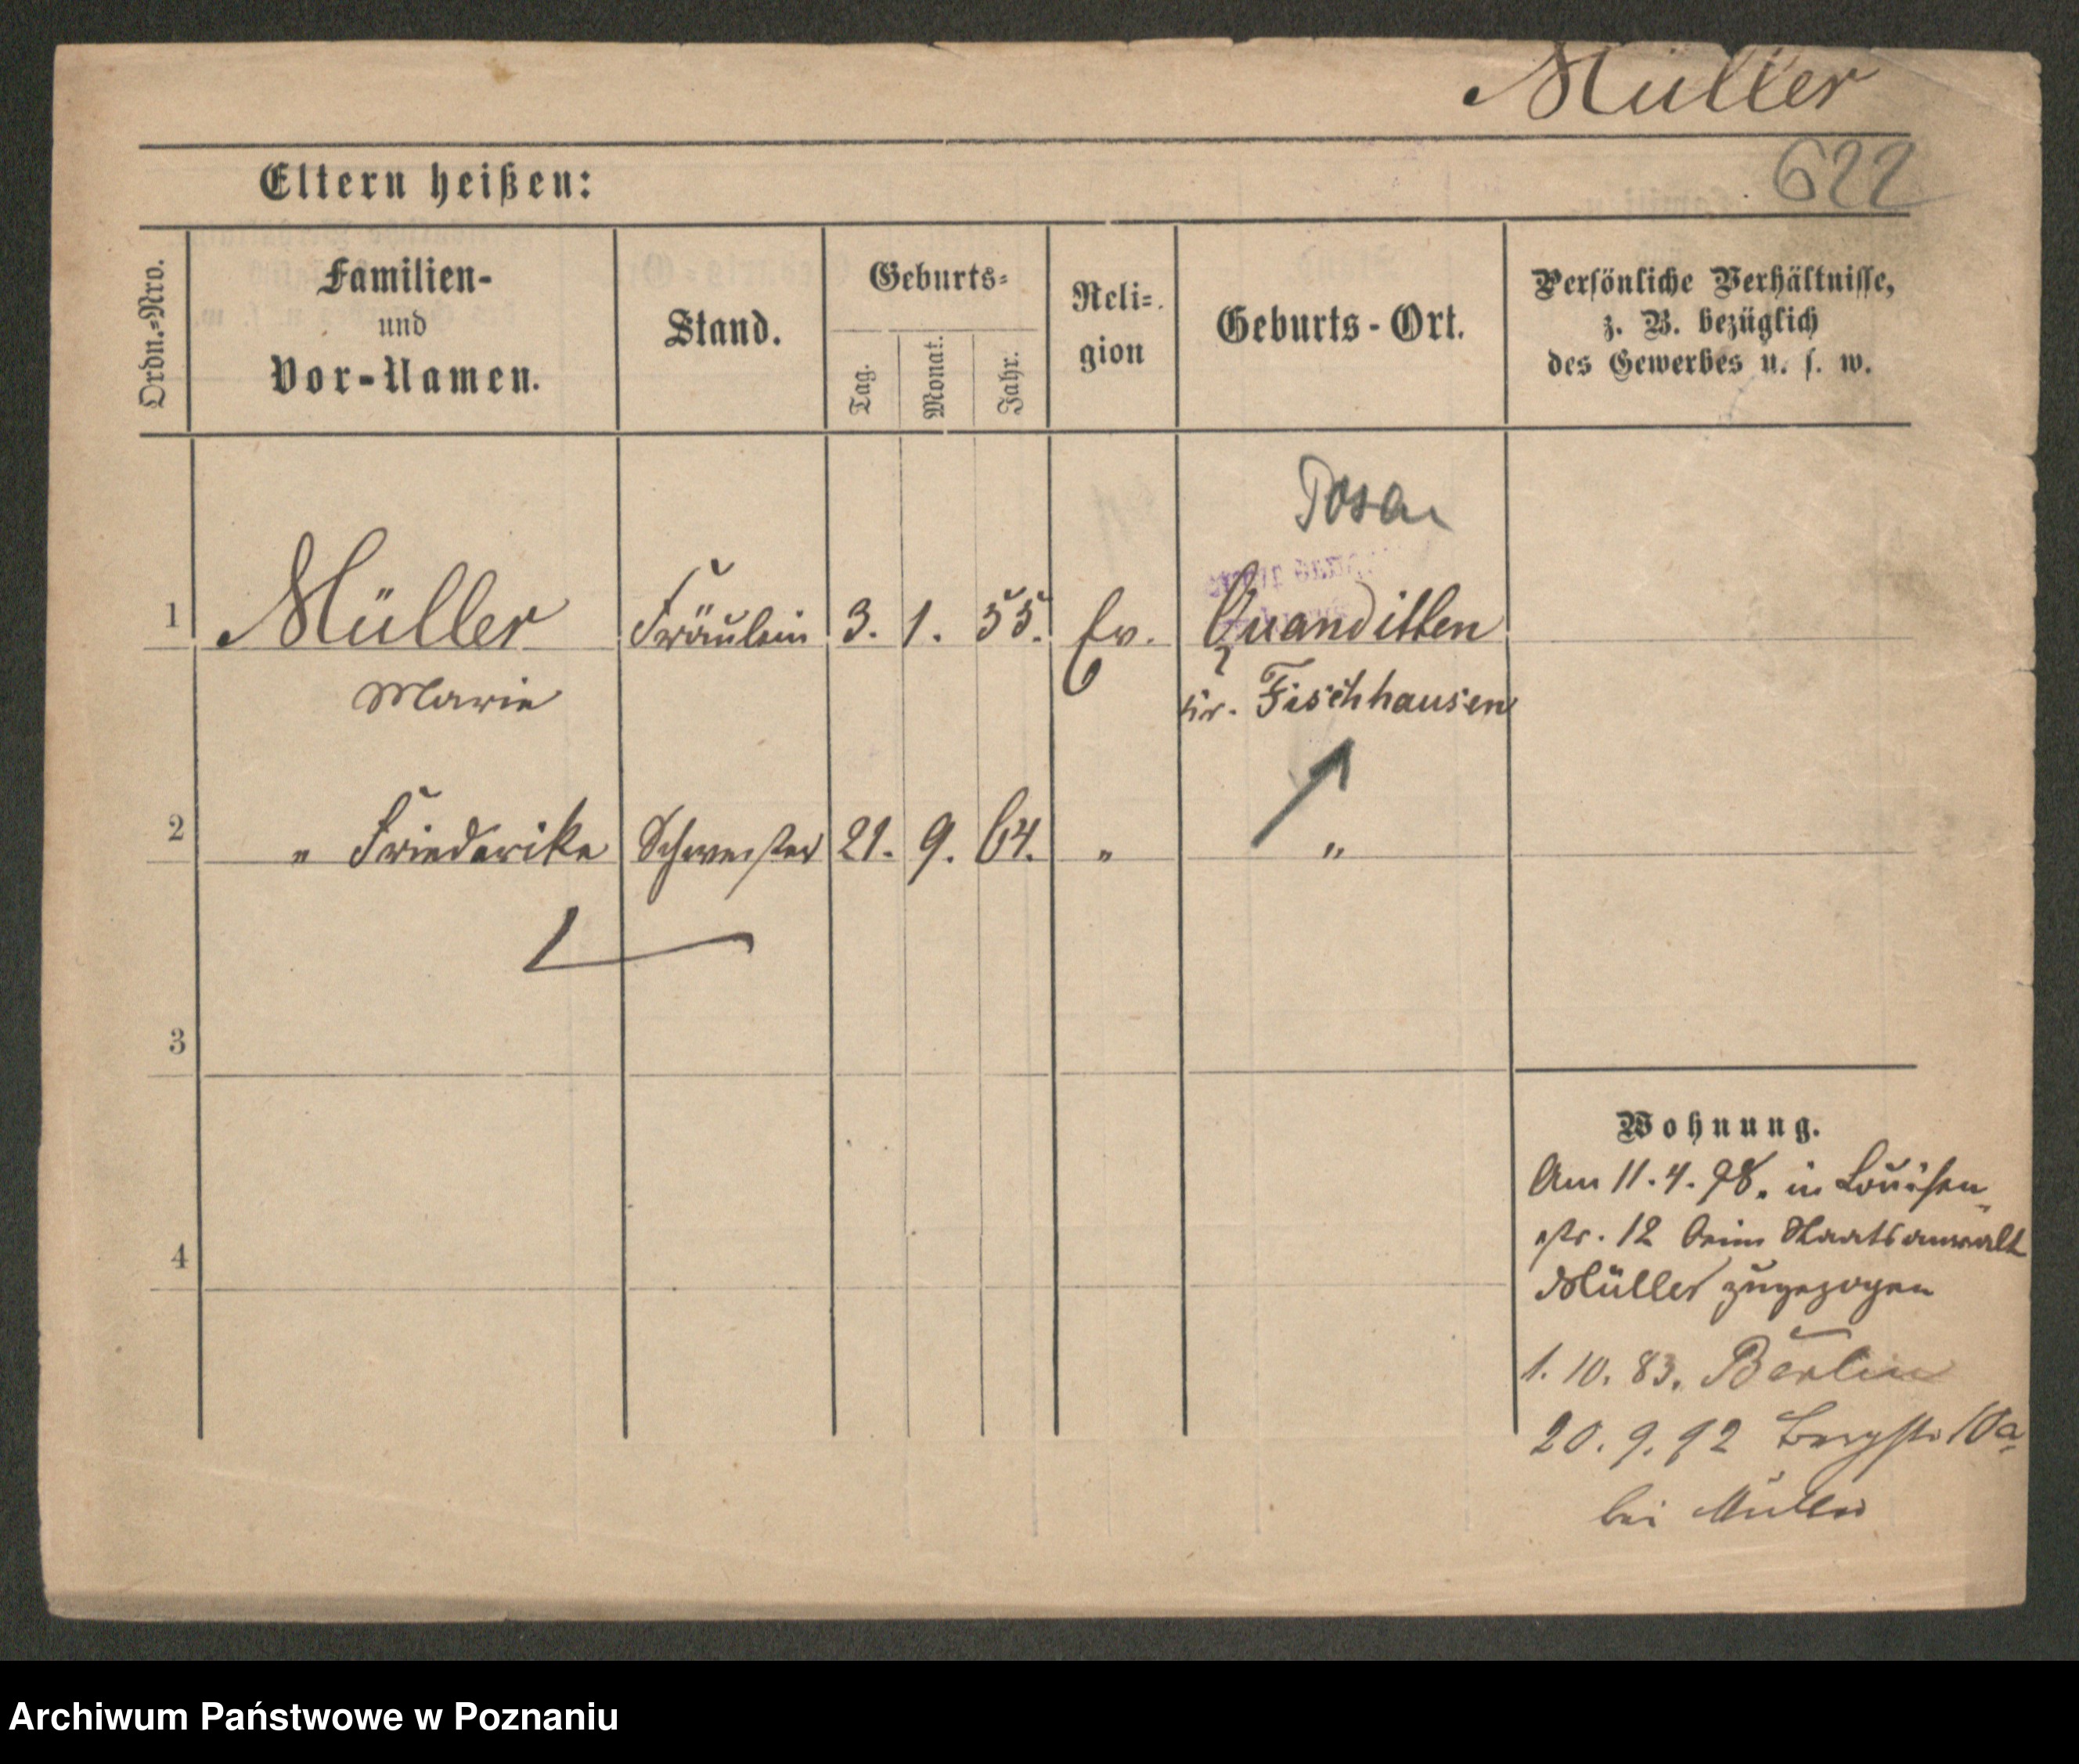 Müller
622
Eltern heißen:
Ordn.=Nro.
Familien-
und
Vor-Namen.
Stand.
Geburts=
Tag.
Monat.
Jahr.
Reli=
gion
Geburts-Ort.
Persönliche Verhältnisse,
z. B. bezüglich
des Gewerbes u. s. w.
Posen
1 Müller Fräulein 3. 1. 55. Ev. Quanditten
Marie Kr. Fischhausen
2 " Friederike Schwester 21. 9. 64. " "
3
4
Wohnung.
Am 11.4.78. in Louisen
str. 12 beim Staatsanwalt
Müller zugezogen
1. 10. 83. Berlin
20. 9. 92 Bergstr 10a
bei Müller
Archiwum Państwowe w Poznaniu